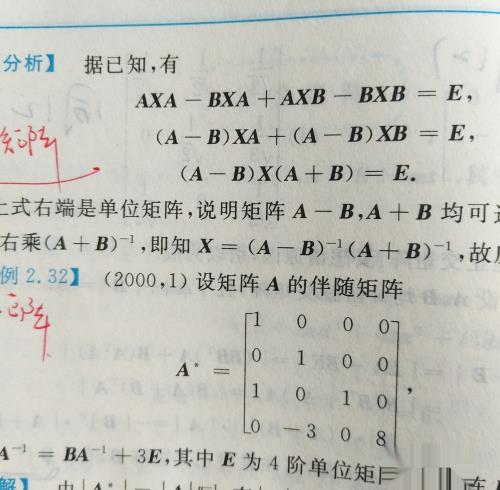 分析】 据已知,有
AXA − BXA + AXB − BXB = E,
(A − B)XA + (A − B)XB = E,
(A − B)X(A + B) = E.
上式右端是单位矩阵,说明矩阵 A − B,A + B 均可
右乘(A + B)⁻¹,即知 X = (A − B)⁻¹(A + B)⁻¹,故
例 2.32】 (2000,1) 设矩阵 A 的伴随矩阵
A* = [1 0 0 0
0 1 0 0
1 0 1 0
0 −3 0 8],
A⁻¹ = BA⁻¹ + 3E,其中 E 为 4 阶单位矩
解】 由